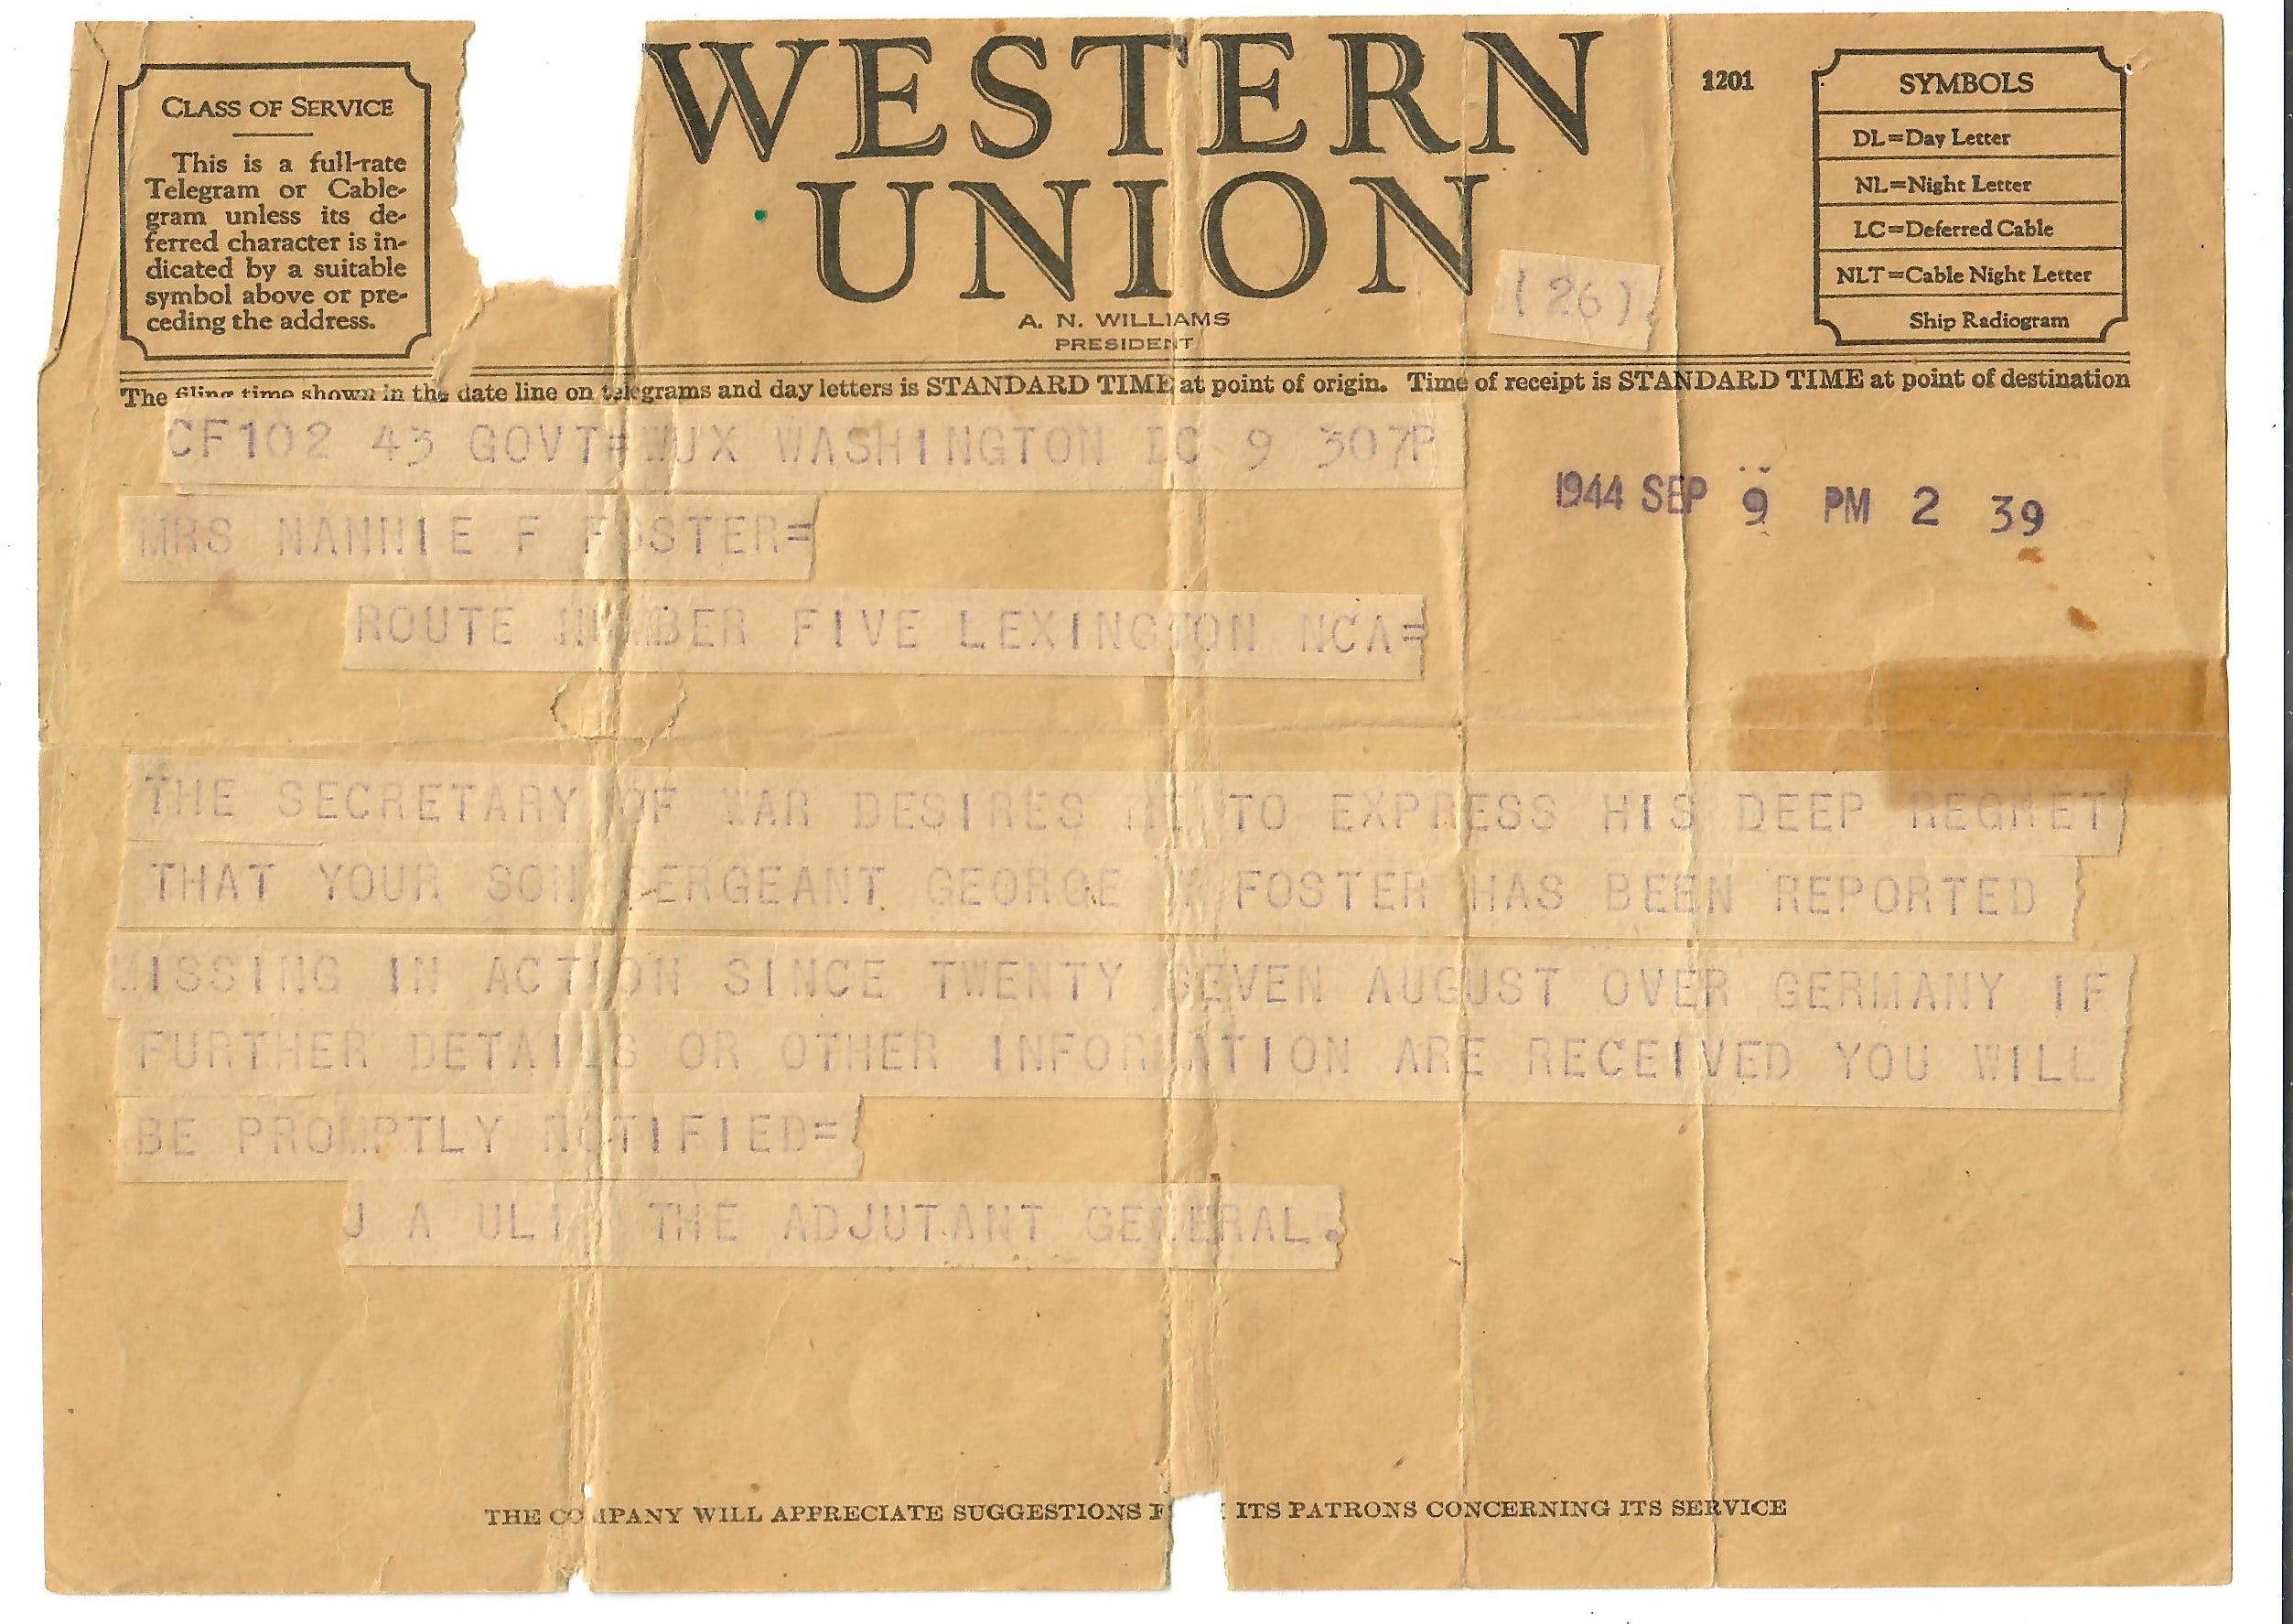 CLASS OF SERVICE
This is a full-rate
Telegram or Cable-
gram unless its de-
ferred character is in-
dicated by a suitable
symbol above or pre-
ceding the address.
WESTERN
UNION
A. N. WILLIAMS
PRESIDENT
(26)
1201
SYMBOLS
DL=Day Letter
NL=Night Letter
LC=Deferred Cable
NLT=Cable Night Letter
Ship Radiogram
The filing time shown in the date line on telegrams and day letters is STANDARD TIME at point of origin. Time of receipt is STANDARD TIME at point of destination
CF102 43 GOVT=WUX WASHINGTON DC 9 307P
1944 SEP 9 PM 2 39
MRS NANNIE F FOSTER=
ROUTE NUMBER FIVE LEXINGTON NCA=
THE SECRETARY OF WAR DESIRES ME TO EXPRESS HIS DEEP REGRET
THAT YOUR SON SERGEANT GEORGE FOSTER HAS BEEN REPORTED
MISSING IN ACTION SINCE TWENTY SEVEN AUGUST OVER GERMANY IF
FURTHER DETAILS OR OTHER INFORMATION ARE RECEIVED YOU WILL
BE PROMPTLY NOTIFIED=
J A ULIO THE ADJUTANT GENERAL.
THE COMPANY WILL APPRECIATE SUGGESTIONS ITS PATRONS CONCERNING ITS SERVICE